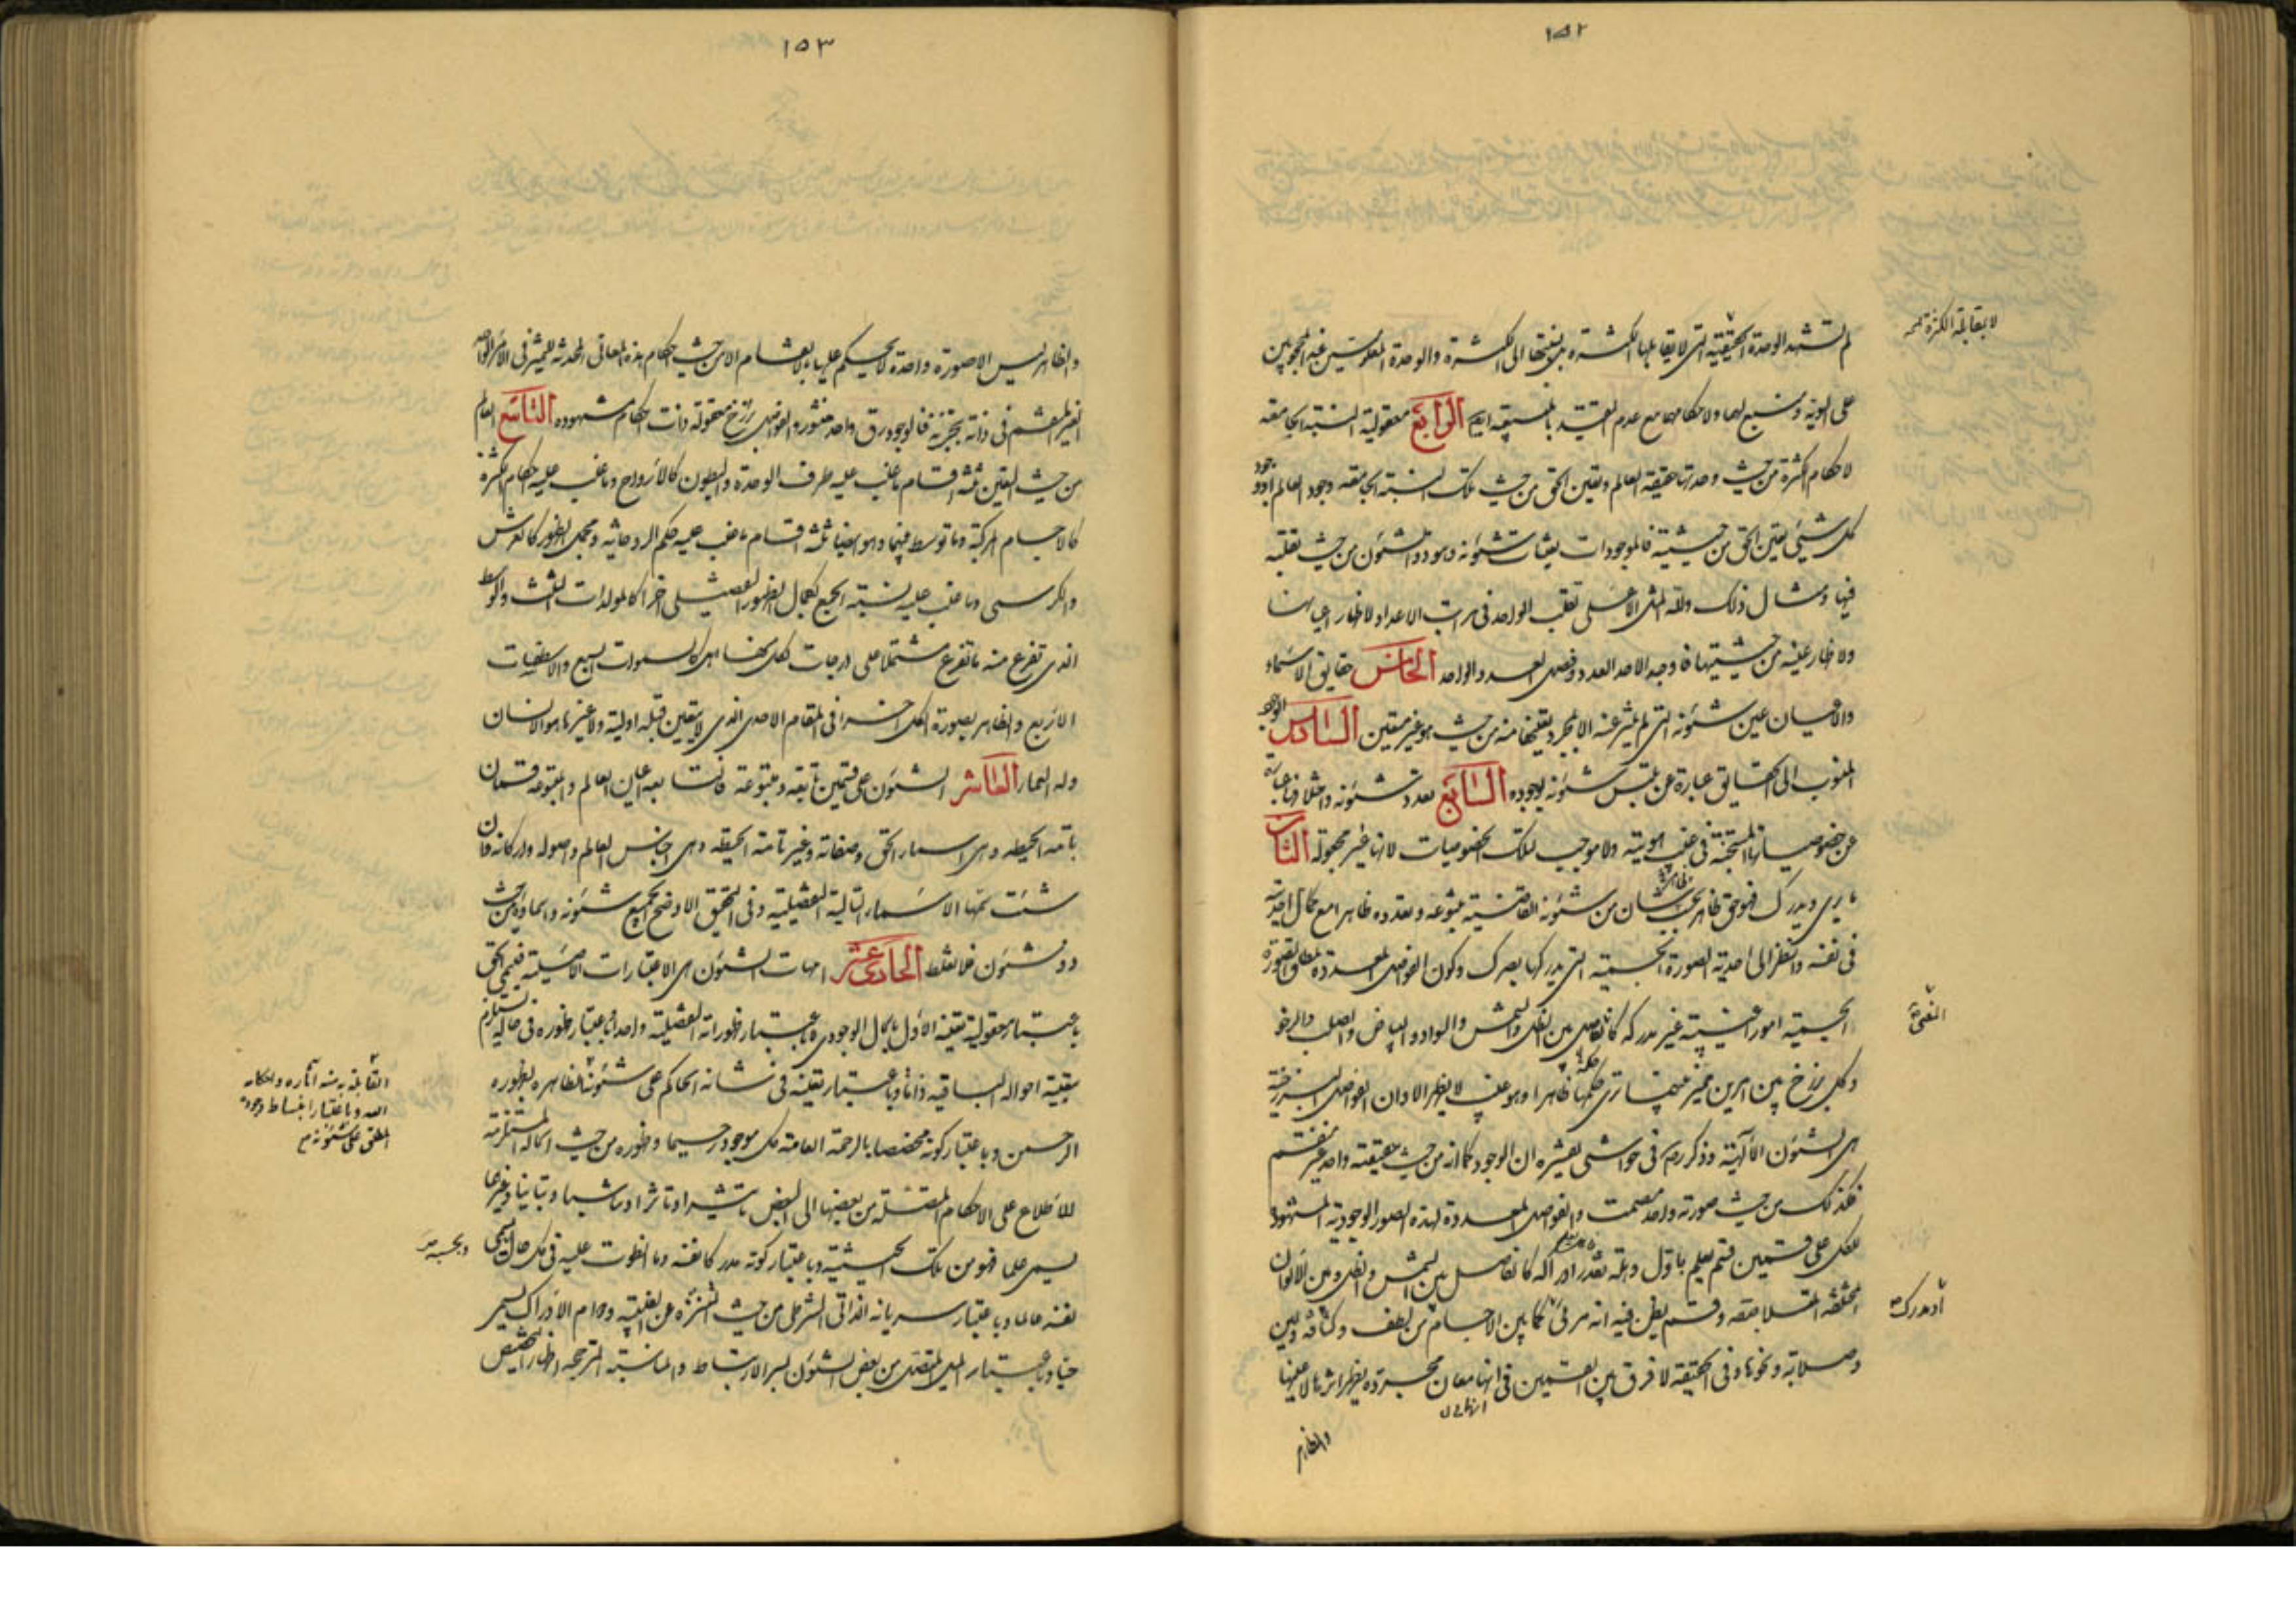 ١٥٢
لم تشهد الوحدة الحقيقية التى لا يقابلها الكثرة بل نسبتها الى الكثرة والوحدة المعلومتين عند المحجوبين
لا بمقابلة الكثرة
على السوية ومنبع لهما ولاحكامهما مع عدم التقيد بالسبقة ايضا الرابع معقولية النسبة الجامعة
لاحكام الكثرة من حيث وحدتها حقيقة العالم وتعين الحق من حيث تلك النسبة الجامعة وجود العالم
كل شيئى تعين الحق من حيثيته فالموجودات تعينات شئونه وهو ذو الشئون من حيث تقلبه
فيها ومثال ذلك ولله المثل الاعلى تقلب الواحد فى مراتب الاعداد لاظهار اعيانها
ولاظهار عينه من حيثيتها فاوجد الواحد العدد وفصل العدد الواحد الخامس حقايق الاسماء
والاعيان عين شئونه التى لم يتميز عنه الا بمجرد تعينها منه من حيث هو غير متعين السادس الوجود
المنسوب الى الحقايق عبارة عن تلبس شئونه بوجوده السابع تعدد شئونه واختلافها عبارة
عن خصوصياتها المستجنة فى غيب هويته ولا موجب لتلك الخصوصيات لانها غير مجعولة الثامن
ما يرى ويدرك فهو حق ظاهر بحسب شان من شئونه القاضية بتنوعه وتعدده ظاهرا مع كمال احديته
فى نفسه وانظر الى احدية الصورة الجسمية التى يدركها بصرك وكون الفواصل المعددة لمطلق الصورة
الجسمية امور غيبية غير مدركة كالفاصل بين الظل والشمس والسواد والبياض والصلب والرخو
وكل برزخ بين امرين مميز بينهما ترى حكمها ظاهرا وهو غيب لا يظهر الا وان الفواصل البرزخية
هى الشئون الآلهية وذكر رم فى حواشى تفسيره ان الوجود كما انه من حيث حقيقته واحد غير منقسم
فكذلك من حيث صورته واحد مصمت والفواصل المعددة لهذه الصور الوجودية المشهودة
للكل على قسمين قسم يعلم باول وهلة تعذر ادراكه كالفاصل بين الشمس والظل وبين الالوان
المختلفة المتلاصقة وقسم يظن فيه انه مرئى كما بين الاجسام من لطف وكثافة ولين
وصلابة ونحوها وفى الحقيقة لا فرق بين القسمين فى انها معان مجردة يظهر اثرها لا عينها
والظاهر
١٥٣
والظاهر ليس الا صورة واحدة لا يحكم عليها بالانقسام الا من حيث احكام هذه المعانى المحدثة للتميز فى الامر الواحد
الغير المنقسم فى ذاته بتجزية فالوجود رق واحد منشور والفواصل برزخ معقولة ذات احكام مشهودة التاسع العالم
من حيث التعين ثلثة اقسام ما غلب عليه طرف الوحدة والبطون كالارواح وما غلب عليه احكام الكثرة
كالاجسام المركبة وما توسط فيهما وهو ايضا ثلثة اقسام ما غلب عليه حكم الروحانية ومجمل الظهور كالعرش
والكرسى وما غلب عليه نسبة الجمع لكمال الظهور التفصيلى اخرا كالمولدات الثلث والوسط
الذى تفرع منه ما تفرع مشتملا على درجات لكل منها اهل كالسموات السبع والاسطقسات
الاربع والظاهر بصورة الكل اخرا فى المقام الاحدى الذى لا يتعين قبله اولية ولا غيرها هو الانسان
وله العماء العاشر الشئون على قسمين تابعة ومتبوعة فالتابعة اعيان العالم والمتبوعة قسمان
تامة الحيطة وهى اسماء الحق وصفاته وغير تامة الحيطة وهى اجناس العالم واصوله واركانه فان
شئت سمها الاسماء التالية التفصيلية وفى التحقيق الاوضح الجميع شئونه واسماؤه من حيث
ذو شئون فلا تغلط الحادى عشر امهات الشئون هى الاعتبارات الاصلية فيسمى الحق
باعتبار معقولية تعينه الاول بالحال الوجودى وباعتبار ظهوراته التفصيلية واحدا وباعتبار ظهوره فى حالة مستلزم
بقية احواله الباقية ذاتا وباعتبار تعينه فى شانه الحاكم على شئونه الظاهرة بظهوره
الرحمن وباعتبار كونه مخصصا بالرحمة العامة كل موجود رحيما وظهوره من حيث احواله المستلزمة
للاطلاع على الاحكام المتصلة من بعضها الى البعض تاثيرا وتاثرا وتناسبا وتباينا وغيرها
يسمى علما فهو من تلك الحيثية وباعتبار كونه مدركا نفسه وما انطوت عليه فى كل حال يسمى
نفسه عالما وباعتبار سريانه الذاتى الشرطى من حيث التنزه عن الغيبة ودوام الادراك يسمى
حيا وباعتبار الميل المتصل من بعض الشئون بسر الارتباط والمناسبة المرجحة اظهار التخصيص